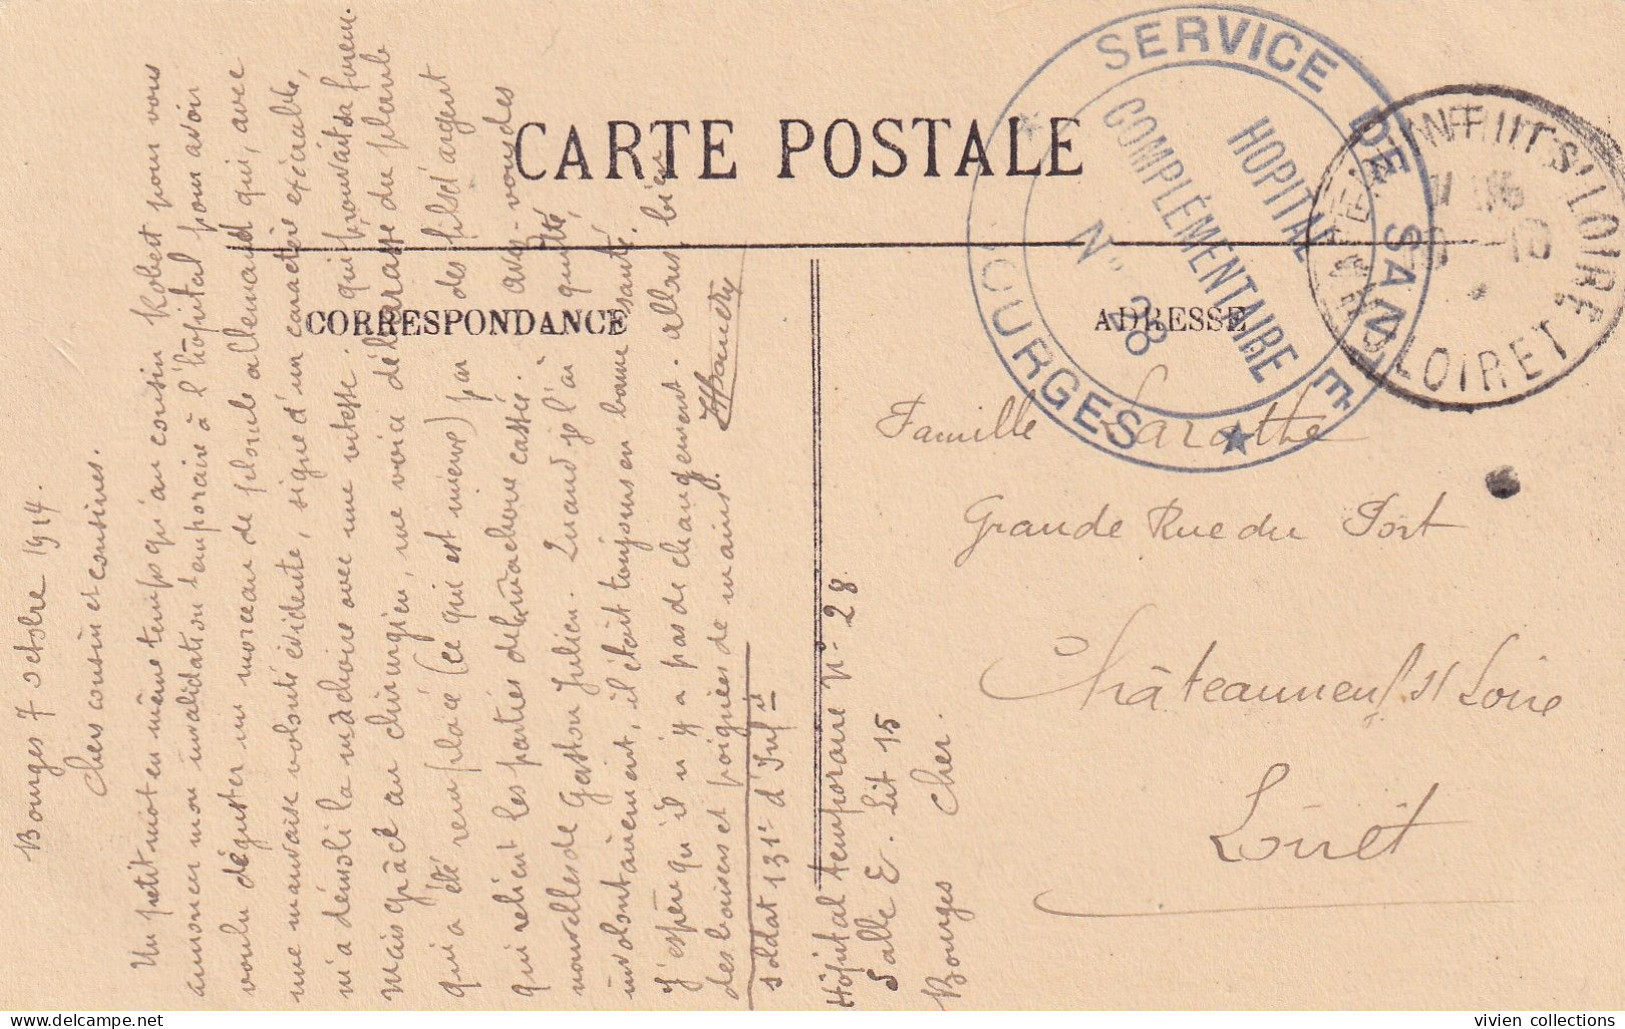 CARTE POSTALE
CORRESPONDANCE
ADRESSE
SERVICE DE SANTÉ
BOURGES
HOPITAL
COMPLÉMENTAIRE
N° 28
CHATEAUNEUF S' LOIRE
LOIRET
Bourges 7 octobre 1914.
Chers cousin et cousines.
Un petit mot en même temps qu'au cousin Robert pour vous
annoncer mon invalidation temporaire à l'hôpital pour avoir
voulu déguster un morceau de pomme allemand qui, avec
une mauvaise volonté évidente, signe d'un caractère exécrable,
m'a démoli la mâchoire avec une vitesse qui prouvait sa fureur.
Mais grâce au chirurgien, me voici débarrassé du plomb
qui a été remplacé (ce qui est mieux) par des fils d'argent
qui relient les parties de la mâchoire cassée. avez-vous des
nouvelles de Gaston Julien. Quand je l'ai quitté,
involontairement, il était toujours en bonne santé.
J'espère qu'il n'y a pas de changement. allons, bien
des baisers et poignées de mains.
soldat 131e d'Inf ie
Hôpital temporaire N° 28
Salle E. Lit 15
Bourges Cher.
Famille Larathe
Grande Rue du Port
Châteauneuf s/ Loire
Loiret
vivien collections